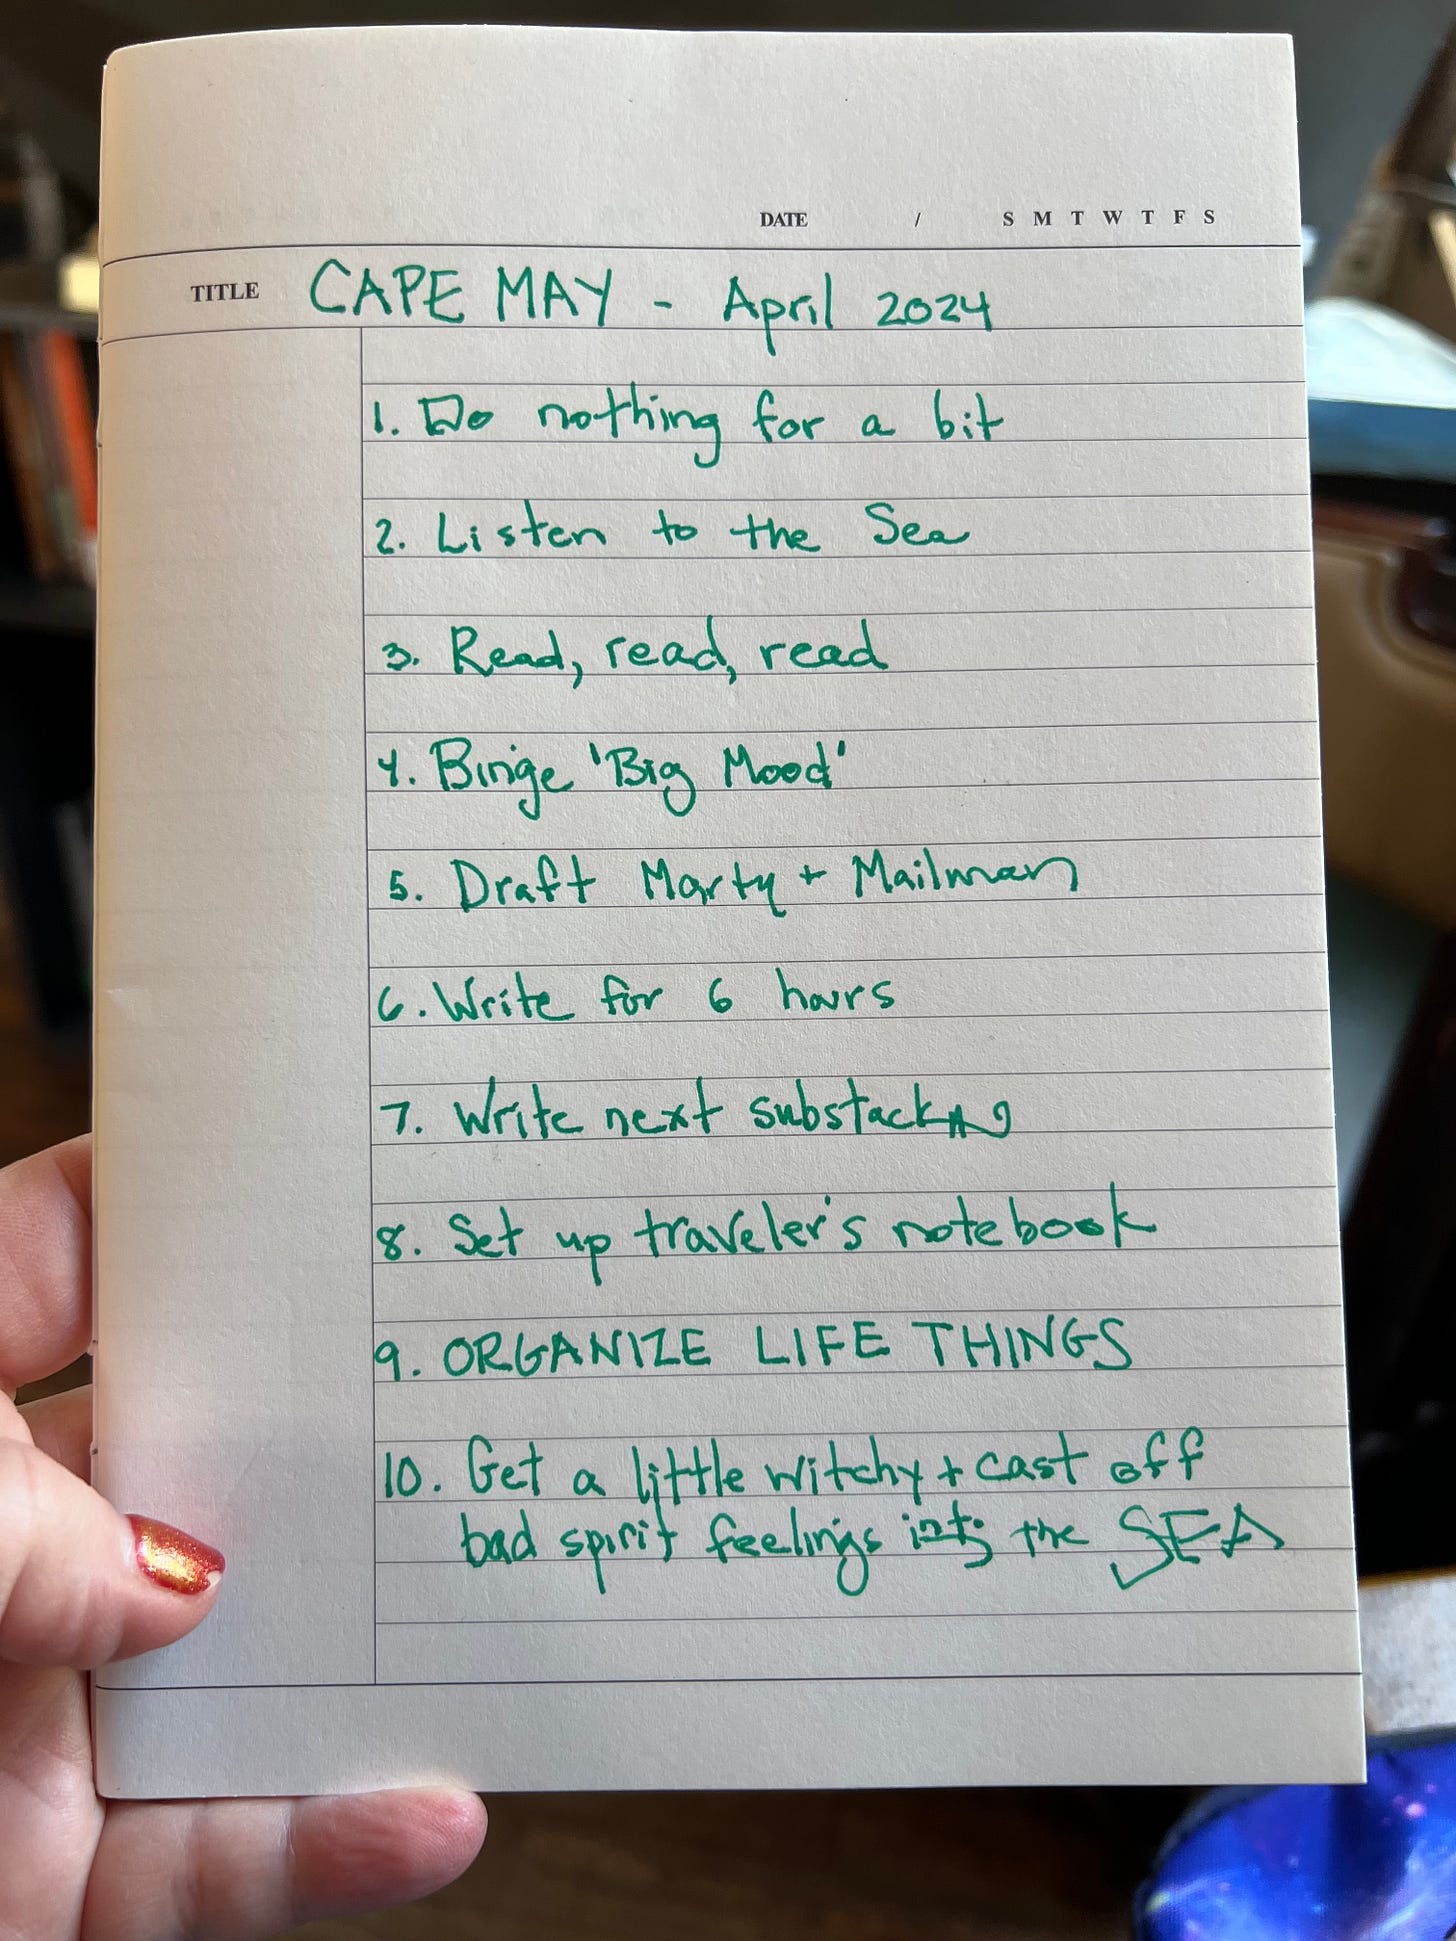 DATE / S M T W T F S
TITLE CAPE MAY - April 2024
1. Do nothing for a bit
2. Listen to the Sea
3. Read, read, read
4. Binge 'Big Mood'
5. Draft Marty + Mailman
6. Write for 6 hours
7. Write next substack
8. Set up traveler's notebook
9. ORGANIZE LIFE THINGS
10. Get a little witchy + cast off
bad spirit feelings into the SEA